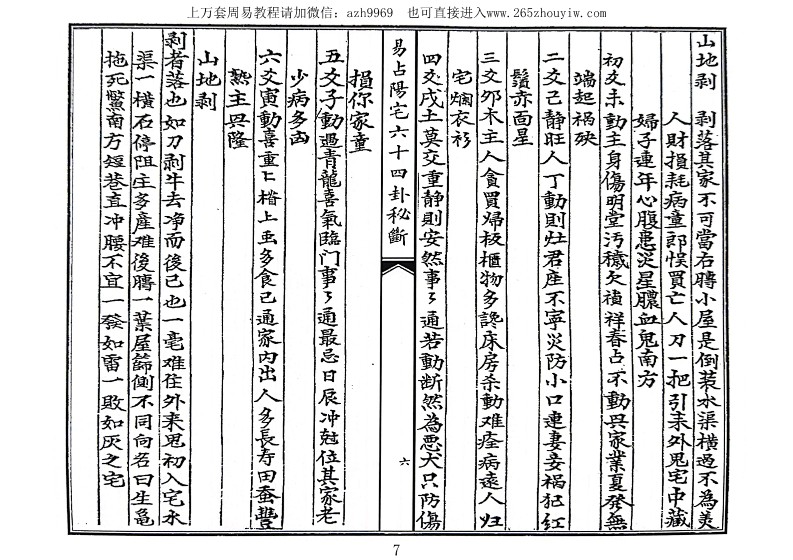 上万套周易教程请加微信：azh9969 也可直接进入www.265zhouyiw.com
山地剥 剥落其家不可當右膊小屋是倒装水渠横過不為美
人財損耗病童郎悮買亡人刀一把引耒外鬼宅中藏
婦子連年心腹患災星膿血鬼南方
初爻未動主身傷明堂污穢欠禎祥春占不動興家業夏發無
端起祸殃
二爻已静旺人丁動則灶君座不寧災防小口連妻妾祸犯红
鬚赤面星
三爻夘木主人貪買婦板櫃物多讒床房杀動难痊病遠人归
宅爛衣衫
四爻戌土莫交重静則安然事々通若動断然為悪犬只防傷
損你家童
五爻子動遇青龍喜氣臨门事々通最忌日辰冲尅位其家老
少病多凶
六爻寅動喜重匕楷上虫多食己通家内出人多長寿田蚕豐
熟主興隆
山地剥
剥者落也如刀剥牛去净而後已也一毫难住外耒鬼初入宅水
渠一横石停阻主多産难後膊一葉屋篩側不同向名曰生龟
拖死鱉南方短巷直冲腰不宜一發如雷一敗如灰之宅
易占陽宅六十四卦秘斷
六
7